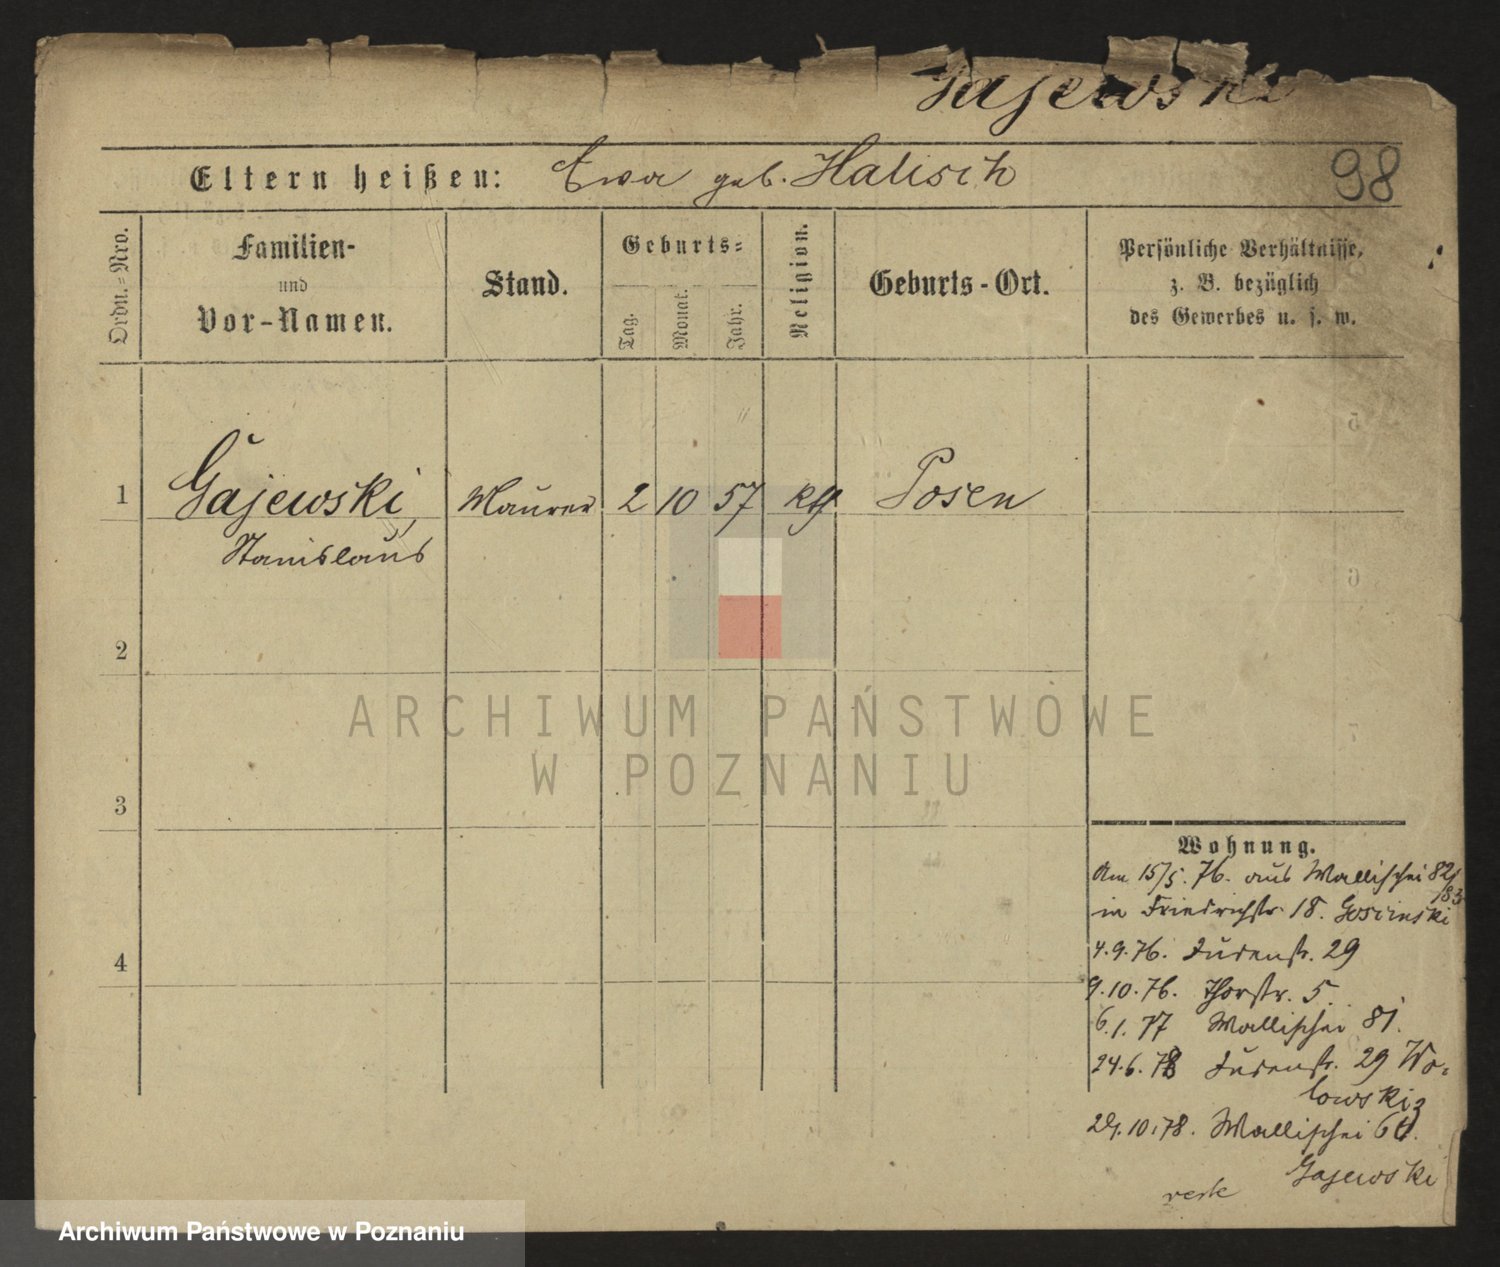 Gajewski
Eltern heißen: Ewa geb. Halisch
98
Ordn.-Nro.
Familien-
und
Vor-Namen.
Stand.
Geburts-
Tag.
Monat.
Jahr.
Religion.
Geburts-Ort.
Persönliche Verhältnisse,
z. B. bezüglich
des Gewerbes u. s. w.
1 Gajewski, Maurer 2 10 57 kth Posen
Stanislaus
2
3
4
ARCHIWUM PAŃSTWOWE
W POZNANIU
Wohnung.
Am 15/5. 76. aus Wallischei 82/
83
in Friedrichstr. 18. Gosinski
4.9.76. Judenstr. 29
9.10.76. Thorstr. 5.
6.1.77 Wallischei 81.
24.6.78 Judenstr. 29 Wo-
lowski
29.10.78. Wallischei 64.
Gajewski
Archiwum Państwowe w Poznaniu